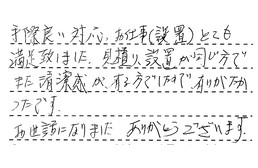 手際良い対応、お仕事(設置)とても
満足致しました。見積り、設置が同じ方で
また清潔感が有る方でしたので、ありがたか
ったです。
お世話になりました ありがとうございます。